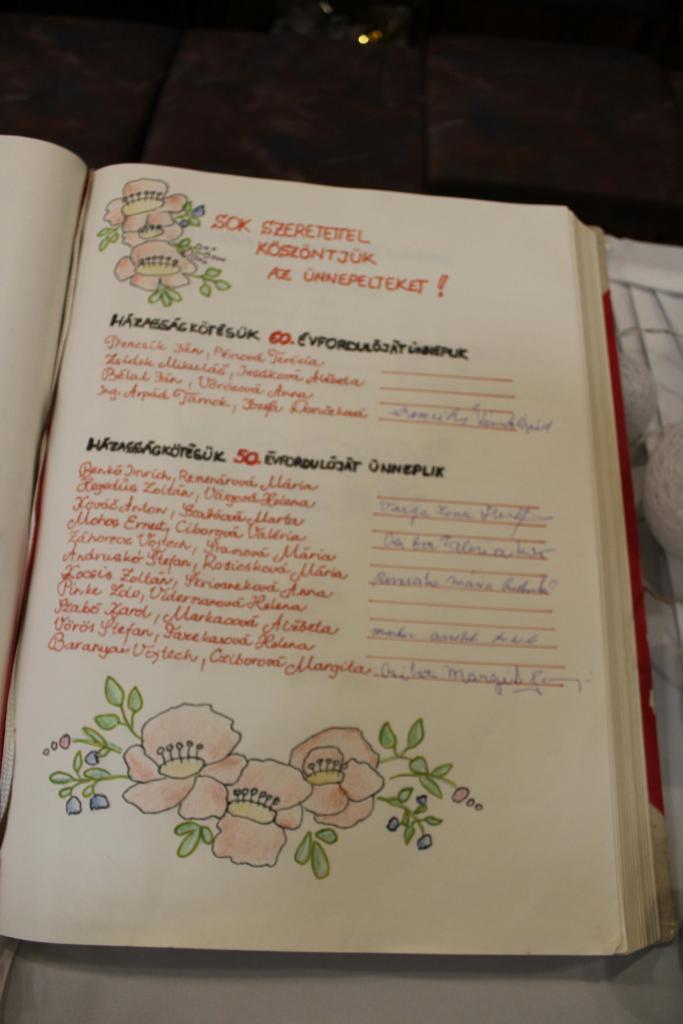 SOK SZERETETTEL
KÖSZÖNTJÜK
AZ ÜNNEPELTEKET!
HÁZASSÁGKÖTÉSÜK 60. ÉVFORDULÓJÁT ÜNNEPLIK
Trencsík Ján, Péncová Terézia
Zsidek Mikuláš, Alžbeta
Bélai Ján, Vörösová Anna
Ing. Arpád Tárnok, Jozefa Dančeková
HÁZASSÁGKÖTÉSÜK 50. ÉVFORDULÓJÁT ÜNNEPLIK
Benkó Imrich, Remenárová Mária
Hegedüs Zoltán, Vargová Helena
Kováč Anton, Szabóová Marta
Varga Ilona
Mohos Ernest, Ciborová Valéria
Záhorec Vojtech, Gramová Mária
Andruskó Štefan, Rosicsková Mária
Kocsis Zoltán, Skrivaneková Anna
Pinke Ľdo, Vidermanová Helena
Szabó Karol, Markacová Alžbeta
Vörös Štefan, Helena
Baranyai Vojtech, Cziborová Margita
Czibor Margit